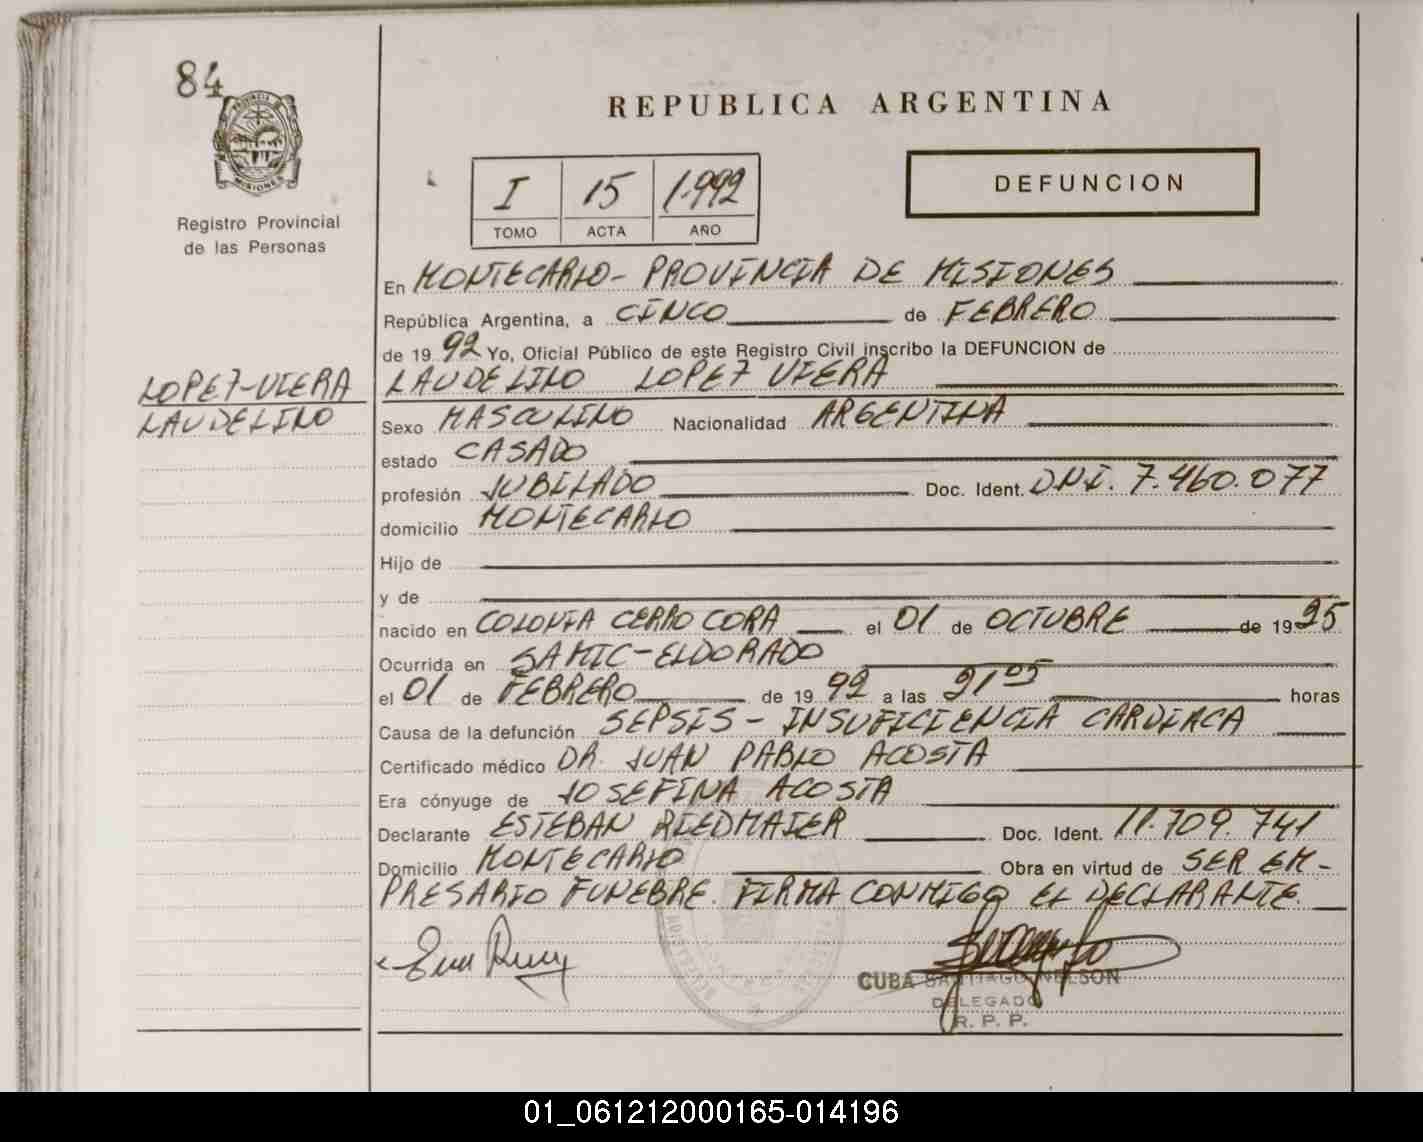 84
PROVINCIA DE
MISIONES
Registro Provincial
de las Personas
REPUBLICA ARGENTINA
I 15 1.992
TOMO ACTA AÑO
DEFUNCION
En MONTECARLO - PROVINCIA DE MISIONES
República Argentina, a CINCO de FEBRERO
de 19 92 Yo, Oficial Público de este Registro Civil inscribo la DEFUNCION de
LOPEZ-VIERA
LAUDELINO
LAUDELINO LOPEZ VIERA
Sexo MASCULINO Nacionalidad ARGENTINA
estado CASADO
profesión JUBILADO Doc. Ident. DNI. 7.460.077
domicilio MONTECARLO
Hijo de
y de
nacido en COLONIA CERRO CORA el 01 de OCTUBRE de 1925
Ocurrida en SAMIC-ELDORADO
el 01 de FEBRERO de 19 92 a las 21 05 horas
Causa de la defunción SEPSIS - INSUFICIENCIA CARDIACA
Certificado médico DR. JUAN PABLO ACOSTA
Era cónyuge de JOSEFINA ACOSTA
Declarante ESTEBAN RIEDMAIER Doc. Ident. 11.709.741
Domicilio MONTECARLO Obra en virtud de SER EM-
PRESARIO FUNEBRE. FIRMA CONMIGO EL DECLARANTE.
CUBA SANTIAGO NELSON
DELEGADO
R. P. P.
01_061212000165-014196